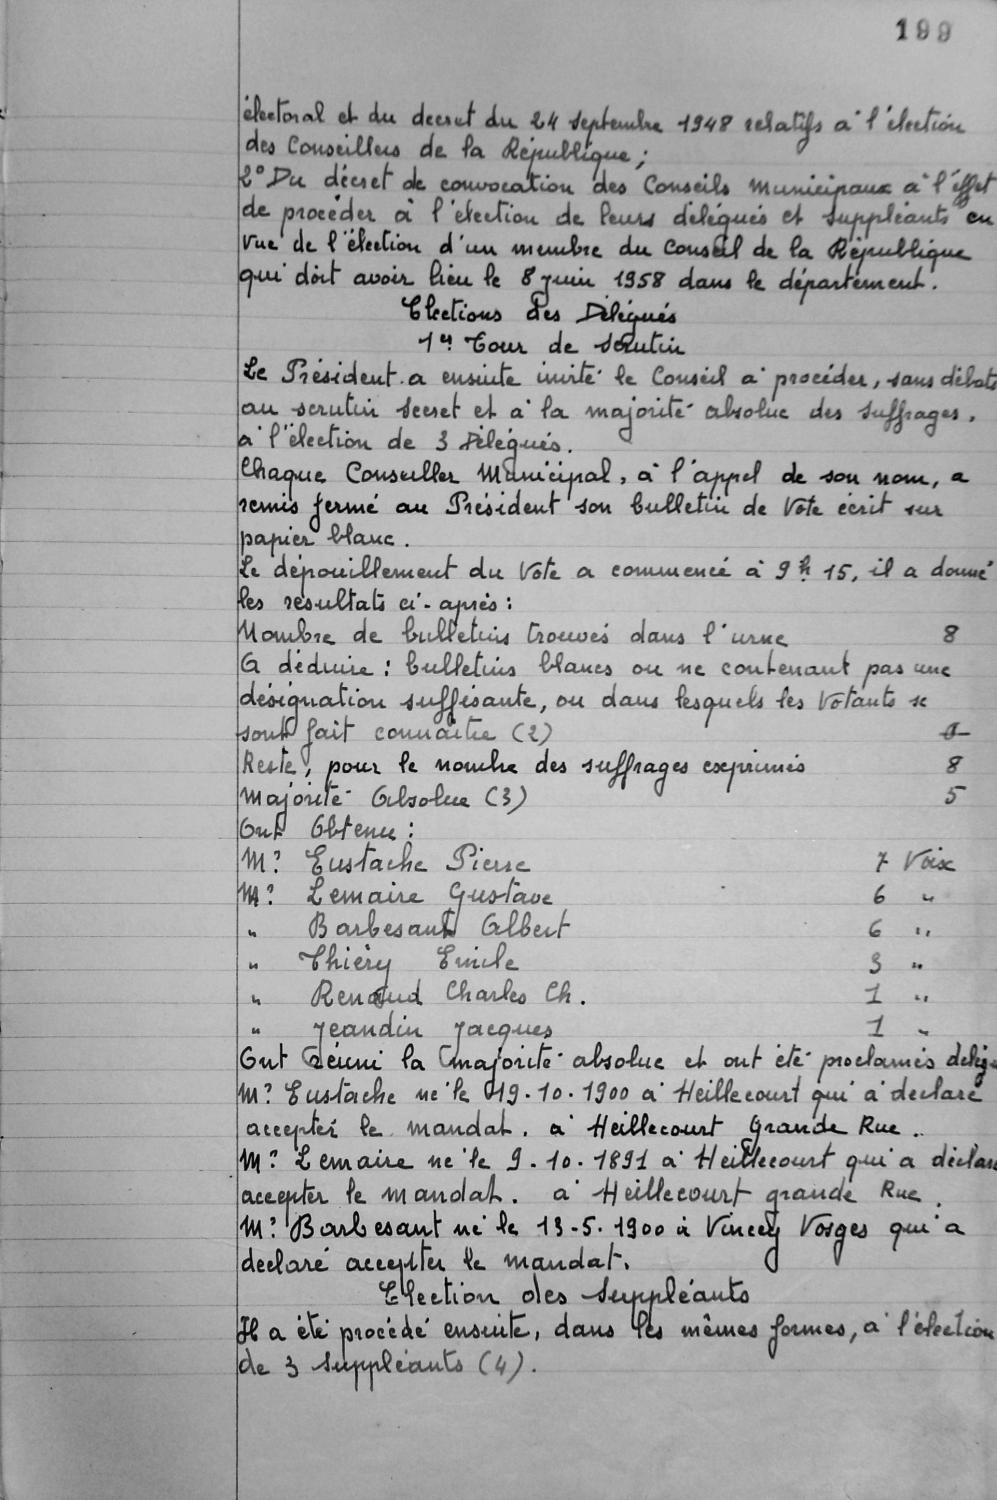 199
électoral et du decret du 24 septembre 1948 relatifs à l'élection
des Conseillers de la République ;
2° Du décret de convocation des Conseils Municipaux à l'effet
de procéder à l'élection de leurs délégués et suppléants en
vue de l'élection d'un membre du Conseil de la République
qui doit avoir lieu le 8 juin 1958 dans le département.
Elections des Délégués
1er Tour de scrutin
Le Président a ensuite invité le Conseil à procéder, sans débats
au scrutin secret et à la majorité absolue des suffrages,
à l'élection de 3 Délégués.
Chaque Conseiller Municipal, à l'appel de son nom, a
remis fermé au Président son bulletin de Vote écrit sur
papier blanc.
Le dépouillement du Vote a commencé à 9h 15, il a donné
les résultats ci-après :
Nombre de bulletins trouvés dans l'urne 8
A déduire : bulletins blancs ou ne contenant pas une
désignation suffisante, ou dans lesquels les Votants se
sont fait connaitre (2) 0
Reste, pour le nombre des suffrages exprimés 8
Majorité Absolue (3) 5
Ont Obtenu :
Mr Eustache Pierre 7 Voix
Mr Lemaire Gustave 6 "
" Barbesant Albert 6 "
" Thiéry Emile 3 "
" Renaud Charles Ch. 1 "
" Jeandin Jacques 1 "
Ont Réuni la majorité absolue et ont été proclamés délég
Mr Eustache né le 19.10.1900 à Heillecourt qui a déclaré
accepter le mandat. à Heillecourt Grande Rue.
Mr Lemaire né le 9.10.1891 à Heillecourt qui a déclaré
accepter le mandat. à Heillecourt grande Rue.
Mr Barbesant né le 13-5.1900 à Vincey Vosges qui a
declaré accepter le mandat.
Election des Suppléants
Il a été procédé ensuite, dans les mêmes formes, à l'élection
de 3 suppléants (4).